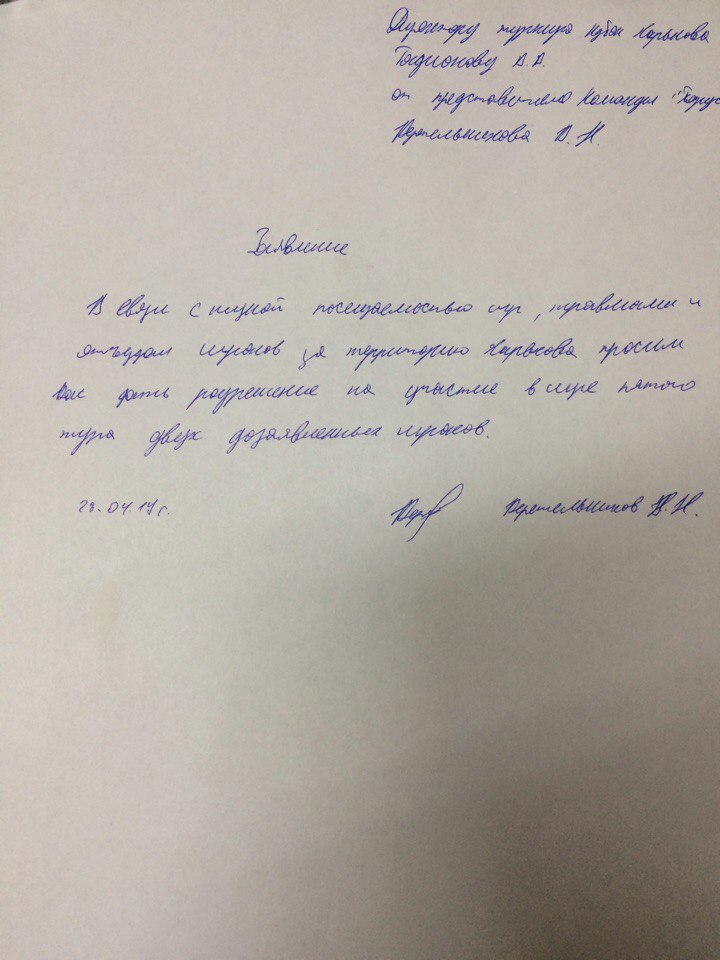 Директору турнира Кубок Харькова
В.А.
от представителя команды
Д.Н.
Заявление
В связи с низкой посещаемостью игр, травмами и
отъездом игроков за территорию Харькова просим
Вас дать разрешение на участие в игре пятого
тура двух дозаявленных игроков.
28.04.17г.
Д.Н.